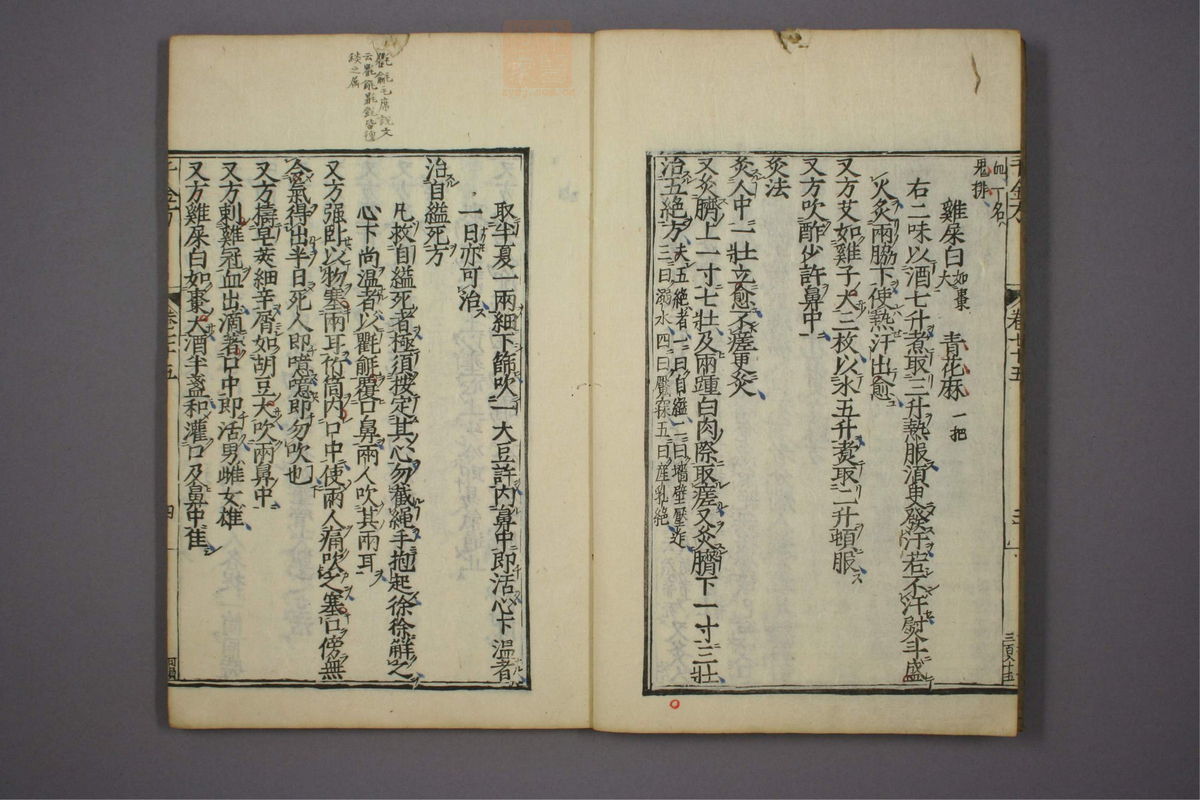 血一名
鬼排
雞屎白如棗大 青花麻一把
右二味以酒七升煮取三升熱服須臾發汗若不汗熨斗盛
火灸兩脇下使熱汗出愈
又方艾如雞子大三枚以水五升煮取二升頓服
又方吹酢少許鼻中
灸法
灸人中一壯立愈不瘥更灸
又灸臍上一寸七壯及兩踵白肉際取瘥又灸臍下一寸三壯
治五絶方夫五絶者一曰自縊二曰墻壁壓迮
三曰溺水四曰魘寐五曰産乳絶
取半夏一兩細下篩吹一大豆許内鼻中即活心下温者
一日亦可治
治自縊死方
凡救自縊死者極須按定其心勿截繩手抱起徐徐解之
心下尚温者以氍毹覆口鼻兩人吹其兩耳
又方强臥以物塞兩耳竹筒内口中使兩人痛吹之塞口傍無
令氣得出半日死人即噫噫即勿吹也
又方擣皂莢細辛屑如胡豆大吹兩鼻中
又方刺雞冠血出滴著口中即活男雌女雄
又方雞屎白如棗大酒半盞和灌口及鼻中佳
千金方 卷二十五 四
氍毹毛席説文
云氍毹
緂之屬